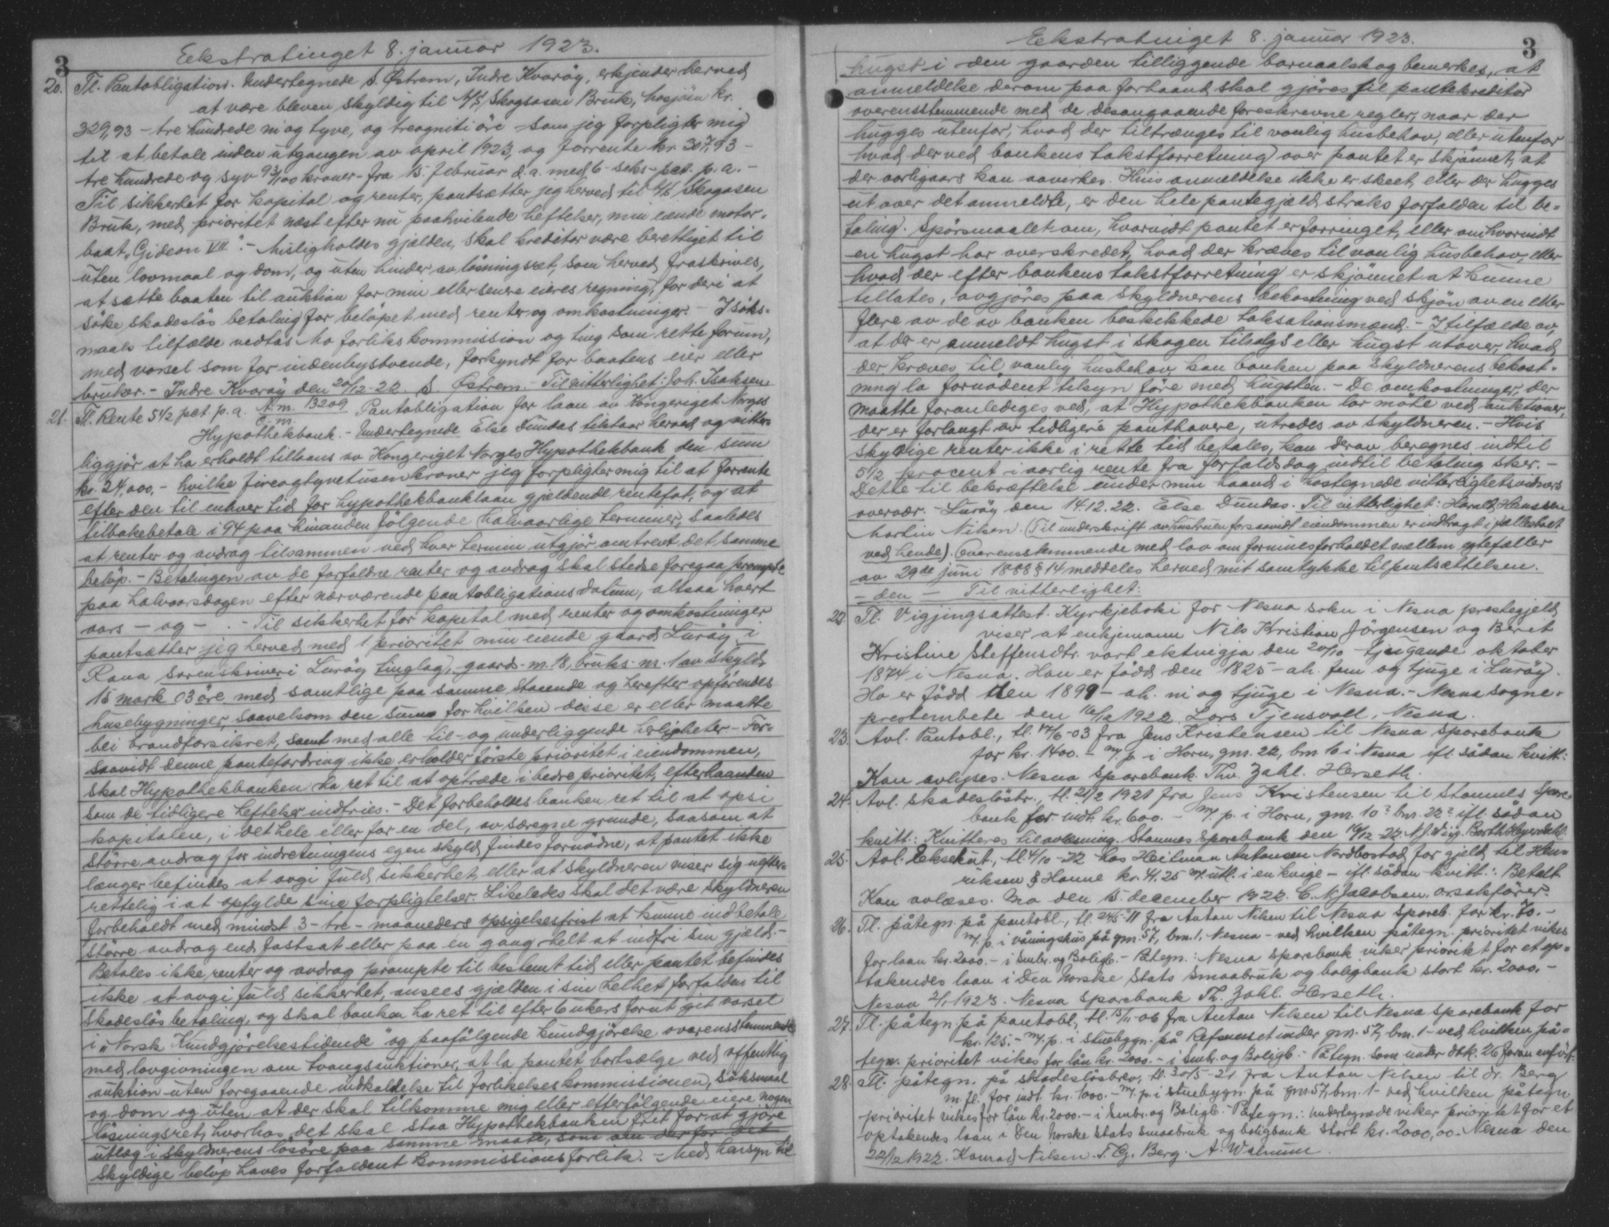 Ekstratinget 8. januar 1923.
3
20. Tl. Pantobligation. Undertegnede S. Østrem, Indre Kvarøy, erkjender herved
at være bleven skyldig til A/S Skogsøen Bruk, Kr.
329,93 - tre hundrede ni og tyve, og treogniti öre - som jeg forpligter mig
til at betale inden utgangen av april 1923, og forrente kr. 307,93 -
tre hundrede og syv 93/100 kroner - fra 15. februar d.a. med 6 - seks - pct. p.a. -
Til sikkerhet for kapital og renter, pantsætter jeg herved til A/S Skogsøen
Bruk, med prioritet næst efter nu paahvilende heftelser, min eiende motor-
baat "Gideon VII". - Misligholdes gjælden, skal kreditor være berettiget til
uten lovmaal og dom, og uten hinder av løsningsret, som herved fraskrives,
at sætte baaten til auktion for min eller senere eieres regning, for deri at
söke skadeslös betaling for belöpet med renter og omkostninger. - I söks-
maals tilfælde vedtas Mo forlikskommission og ting som rette forum,
med varsel som for indenbystvende, forkyndt for baatens eier eller
bruker. - Indre Kvarøy den 20/12-22 S. Østrem. - Til vitterlighet: Joh. Isaksen
21. Tl. Rente 5 1/2 pct p.a. N.m. 13209 Pantobligation for laan av Kongeriget Norges
Hypothekbank. - Undertegnede Else Dundas tilstaar herved og vitter-
liggjör at ha erholdt tillaans av Kongeriget Norges Hypothekbank den sum
kr. 24,000,- hvilke fireogtyvetusen kroner jeg forpligter mig til at forrente
efter den til enhver tid for hypothekbanklaan gjeldende rentefot, og at
tilbakebetale i 94 paa hinanden følgende halvaarlige terminer, saaledes
at renter og avdrag tilsammen ved hver termin utgjör omtrent det samme
belöp. - Betalingen av de forfaldne renter og avdrag skal stedse foregaa prompte
paa halvaarsdagen efter nærværende pantobligations datum, altsaa hvert
aars - og - . - Til sikkerhet for kapital med renter og omkostninger
pantsætter jeg herved med 1 prioritet min eiende gaard Lurøy i
Rana sorenskriveri Lurøy tinglag, gaards-nr. 18, bruks-nr. 1 av skyld
15 mark 03 öre, med samtlige paa samme staaende og herefter opförendes
husebygninger, saavelsom den sum for hvilken disse er eller maatte
bli brandforsikret, samt med alle til- og underliggende herligheter. - For-
saavidt denne pantefordring ikke erholder förste prioritet i eiendommen,
skal Hypothekbanken ha ret til at optræde i bedre prioritet, efterhaanden
som de tidligere heftelser indfries. - Det forbeholdes banken ret til at opsi
kapitalen, i det hele eller for en del, av særegne grunde, saasom at
större avdrag for indretningens egen skyld findes fornödne, at pantet ikke
længer befindes at avgi fuld sikkerhet eller at skyldneren viser sig uefter-
rettelig i at opfylde sine forpligtelser. Likeledes skal det være skyldneren
forbeholdt med mindst 3 - tre - maaneders opsigelsesfrist at kunne indbetale
större avdrag end fastsat eller paa en gang helt at indfri sin gjæld. -
Betales ikke renter og avdrag prompte til bestemt tid, eller pantet befindes
ikke at avgi fuld sikkerhet, ansees gjælden i sin helhet forfalden til
skadeslös betaling, og skal banken ha ret til efter 6 ukers forut git varsel
i "Norsk Kundgjørelsestidende" og paafölgende kundgjörelse overensstemmende
med lovgivningen om tvangsauktioner, at la pantet bortsælge ved offentlig
auktion uten foregaaende indkaldelse til forlikelseskommissionen, söksmaal
og dom og uten at der skal tilkomme mig eller efterfølgende eiere nogen
lösningsret, hvorhos det skal staa Hypothekbanken frit for at gjöre
utlæg i skyldnerens lösöre paa samme maate, som om der for det
skyldige belöp haves forfaldent kommissionsforlik. - Med hensyn til
Ekstratinget 8. januar 1923.
3
hugst i den gaarden tilliggende barnaalskog bemerkes, at
anmeldelse derom paa forhaand skal gjöres til pantekreditor
overensstemmende med de desangaaende foreskrevne regler, naar der
hugges utenfor, hvad der tiltrænges til vanlig husbehov, eller utenfor
hvad der ved bankens takstforretning over pantet er skjönnet, at
der aarligaars kan avverkes. Hvis anmeldelse ikke er skeet, eller der hugges
ut over det anmeldte, er den hele pantegjæld straks forfalden til be-
taling. Spörsmaalet om, hvorvidt pantet er forringet, eller om hvorvidt
en hugst har overskredet, hvad der kræves til vanlig husbehov, eller
hvad der efter bankens takstforretning er skjönnet at kunne
tillates, avgjöres paa skyldnerens bekostning ved skjön av en eller
flere av de av banken beskikkede taksationsmænd. - I tilfælde av
at der er anmeldt hugst i skogen tilsalgs eller hugst utover, hvad
der kræves til vanlig husbehov, kan banken paa skyldnerens bekost-
ning la fornödent tilsyn före med hugsten. - De omkostninger, der
maatte foranlediges ved, at Hypothekbanken lar möte ved auktioner,
der er forlangt av tidligere panthavere, utredes av skyldneren. - Hvis
skyldige renter ikke i rette tid betales, kan derav beregnes indtil
5 1/2 procent i aarlig rente fra forfaldsdag indtil betaling sker. -
Dette til bekræftelse under min haand i hostegnede vitterlighetsvidners
overvær. - Lurøy, den 14.12.22. Else Dundas. Til vitterlighet: Harald Hanssen
Martin Nilsen. (Til underskrift av hustruen forsaavidt eiendommen er indbragt i fællesboet
ved hende). Overensstemmende med lov om formuesforholdet mellem egtefæller
av 29de juni 1888 § 14 meddeles herved mit samtykke til pantsættelsen.
- den - Til vitterlighet:
22. Tl. Vigjingsattest. Kyrkjeboki for Nesna sokn i Nesna prestegjeld
viser at enkjemann Nils Kristian Jörgensen og Berit
Kristine Steffensdtr. vart ektevigja den 20/10 - tjugande oktober
1874 i Nesna. Han er född den 1825 - ah. fem og tjuge i Lurøy.
Ho er född den 1829 - ah. ni og tjuge i Nesna. - Nesna sogne-
prestembete den 16/12 1922, Lars Tjensvoll, Nesna.
23. Avl. Pantobl., tl. 17/6-03 fra Jens Kristensen til Nesna Sparebank
for kr. 1400. - m/ p. i Horn, gnr. 22, bnr. 6 i Nesna ifl. sådan kvitt:
Kan avlyses. Nesna Sparebank. Thv. Zahl. Herseth.
24. Avl. skadeslöstr., tl. 21/2 1921 fra Jens Kristensen til Stamnes Spare-
bank for indt. kr. 600. - m/ p. i Horn, gnr. 10? bnr. 22? ifl. sådan
kvitt: Kvitteres til avlæsning. Stamnes Sparebank den 19/12-22.
25. Avl. Eksekut., tl. 4/10-22 hos Heilman Antonsen Nordbostad for gjeld til Hen-
riksen & Hanne kr. 41,25 m/ utl. i en kvige - ifl. sådan kvitt.: Betalt
Kan avlæses. Mo den 15. december 1922 C. N. Jacobsen, orsakförer.
26. Tl. påtegn. på pantobl., tl. 24/5-11 fra Anton Nilsen til Nesna Spareb. for kr. 70. -
m/ p. i våningshus på gnr. 57, bnr. 1, Nesna - ved hvilken påtegn. prioritet vikes
for laan kr. 2000. - i Småbr. og Boligb. - Påtegn.: Nesna Sparebank viker prioritet for et op-
takendes laan i Den Norske Stats Smaabruk og boligbank stort kr. 2000. -
Nesna 2/1 1923. Nesna Sparebank Th. Zahl. Herseth.
27. Tl. påtegn. på pantobl., tl. 15/11-06 fra Anton Nilsen til Nesna Sparebank for
kr. 125. - m/ p. i stuebygn. på Refsneset under gnr. 57, bnr. 1 - ved hvilken på-
tegn. prioritet vikes for lån kr. 2000. - i Småbr. og Boligb. - Påtegn. som under dok. 26 foran anført.
28. Tl. påtegn. på skadeslösbrev, tl. 30/5-21 fra Anton Nilsen til Dr. Berg
m.fl. for indt. kr. 1000. - m/ p. i stuebygn. på gnr. 57, bnr. 1 - ved hvilken påtegn.
prioritet vikes for lån kr. 2000. - i Småbr. og Boligb. - Påtegn.: Undertegnede viker prioritet for et
optakendes laan i Den Norske Stats Smaabruk og boligbank stort kr. 2000,00. Nesna den
22/12 1922. Konrad Nilsen. F. Q. Berg. A. Walnum.